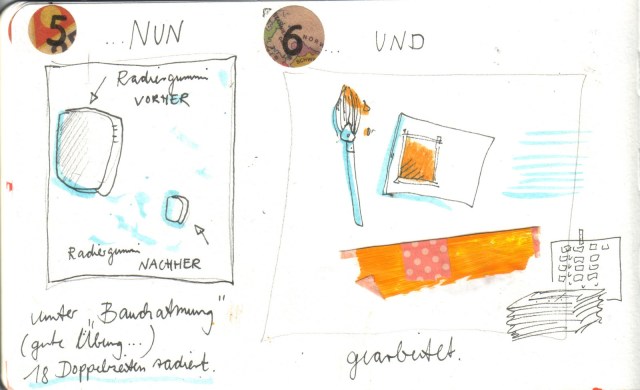 5 ...NUN
Radiergummi
VORHER
Radiergummi
NACHHER
unter "Bauchatmung"
(gute Übung...)
18 Doppelseiten radiert.
6 ... UND
gearbeitet.